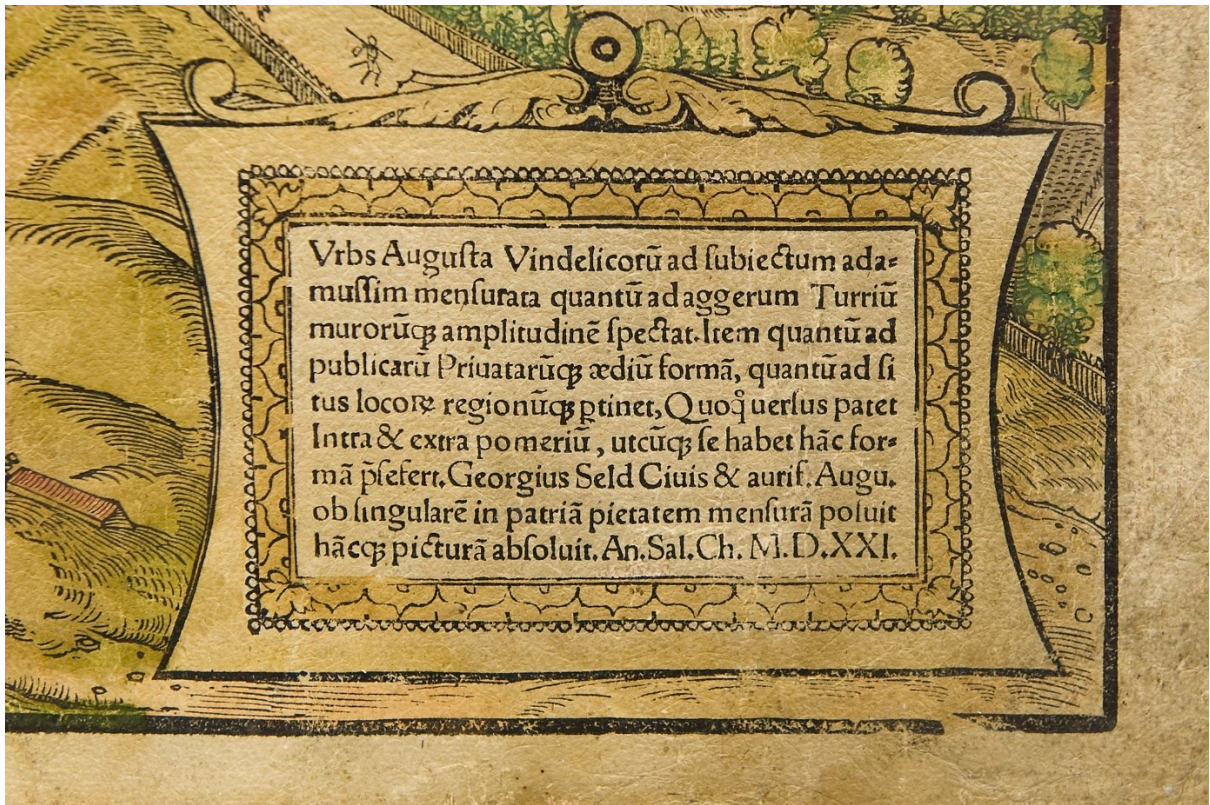 Vrbs Auguſta Vindelicorū ad ſubiectum ada⸗
muſſim menſurata quantū ad aggerum Turriū
murorūqꝫ amplitudinē ſpectat. Item quantū ad
publicarū Priuatarūqꝫ ædiū formā, quantū ad ſi
tus locoꝝ regionūqꝫ ꝑtinet, Quoq̊ uerſus patet
Intra & extra pomeriū, utcūqꝫ ſe habet hāc for⸗
mā p̄ſefert. Georgius Seld Ciuis & aurif. Augu.
ob ſingularē in patriā pietatem menſurā poſuit
hācqꝫ picturā abſoluit. An. Sal. Ch. M.D.XXI.